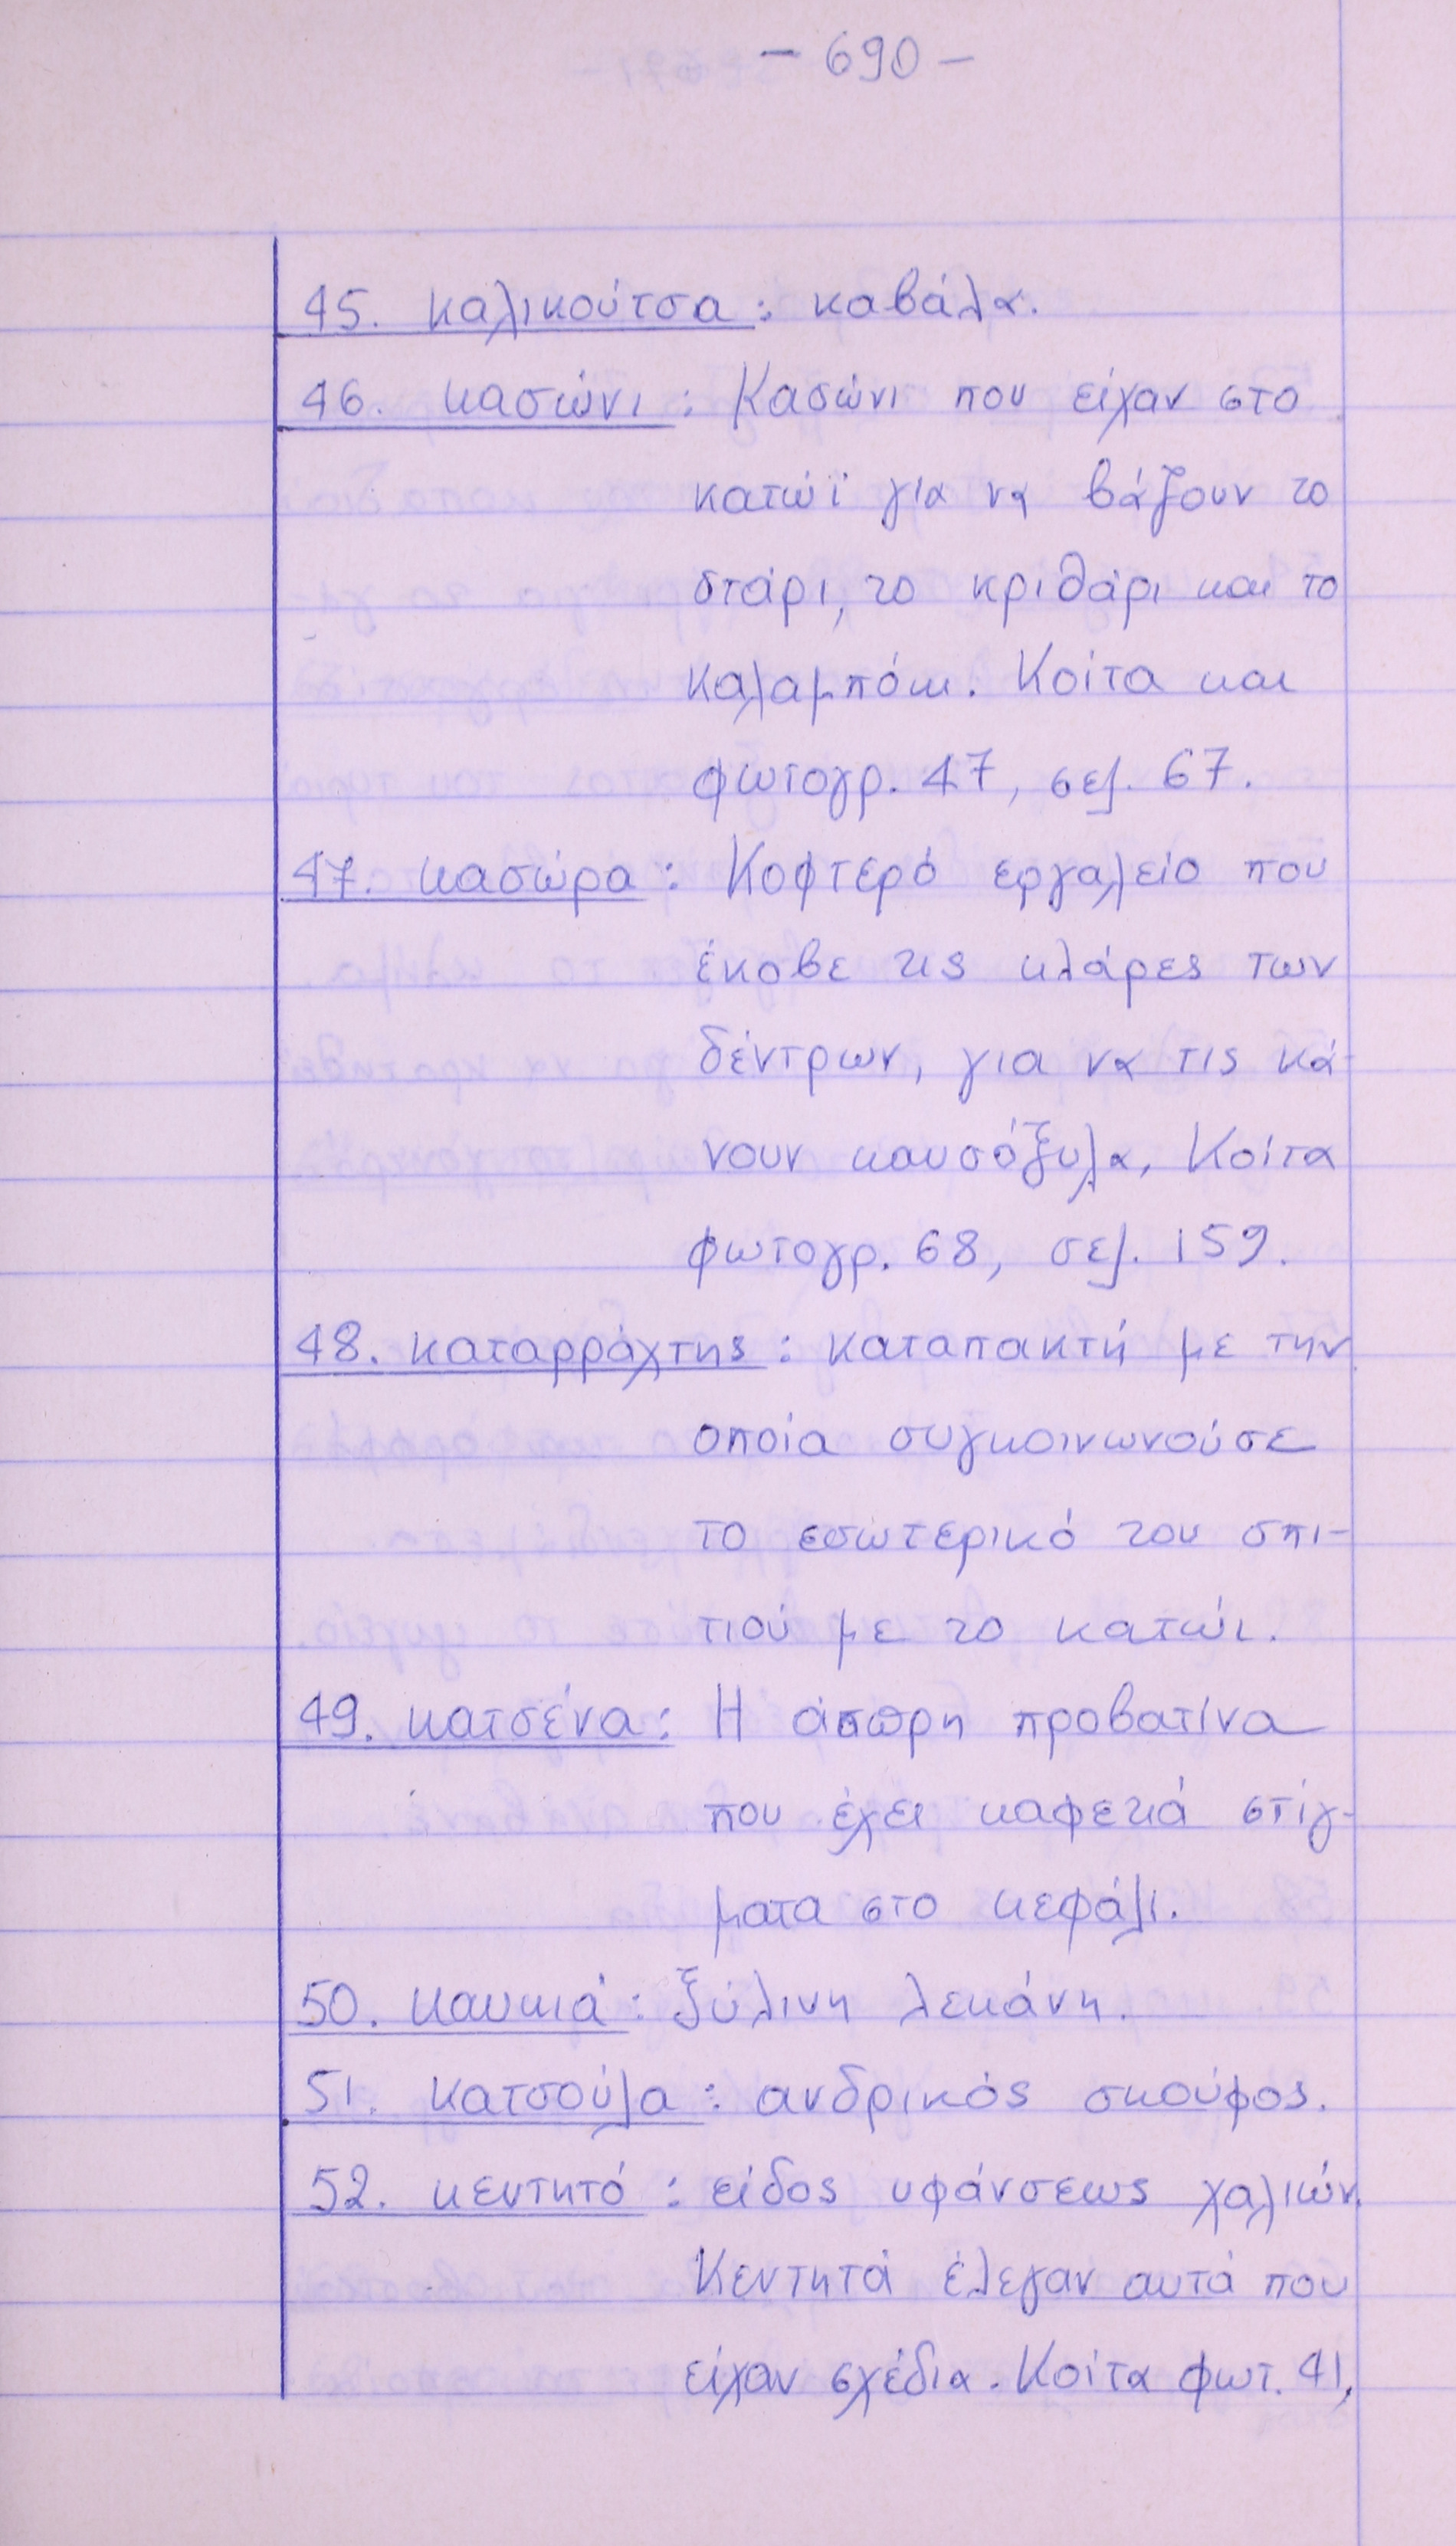 - 690 -
45. καλικούτσα : καβάλα.
46. κασώνι : Κασώνι που είχαν στο
κατώϊ για να βάζουν το
στάρι, το κριθάρι και το
καλαμπόκι. Κοίτα και
φωτογρ. 47, σελ. 67.
47. κασώρα : Κοφτερό εργαλείο που
έκοβε τις κλάρες των
δέντρων, για να τις κά-
νουν καυσόξυλα, Κοίτα
φωτογρ. 68, σελ. 159.
48. καταρράχτης : καταπακτή με την
οποία συγκοινωνούσε
το εσωτερικό του σπι-
τιού με το κατώι.
49. κατσένα : Η άσπρη προβατίνα
που έχει καφετιά στίγ-
ματα στο κεφάλι.
50. καυκιά : ξύλινη λεκάνη.
51. κατσούλα : ανδρικός σκούφος.
52. κεντητό : είδος υφάνσεως χαλιών.
Κεντητά έλεγαν αυτά που
είχαν σχέδια. Κοίτα φωτ. 41,